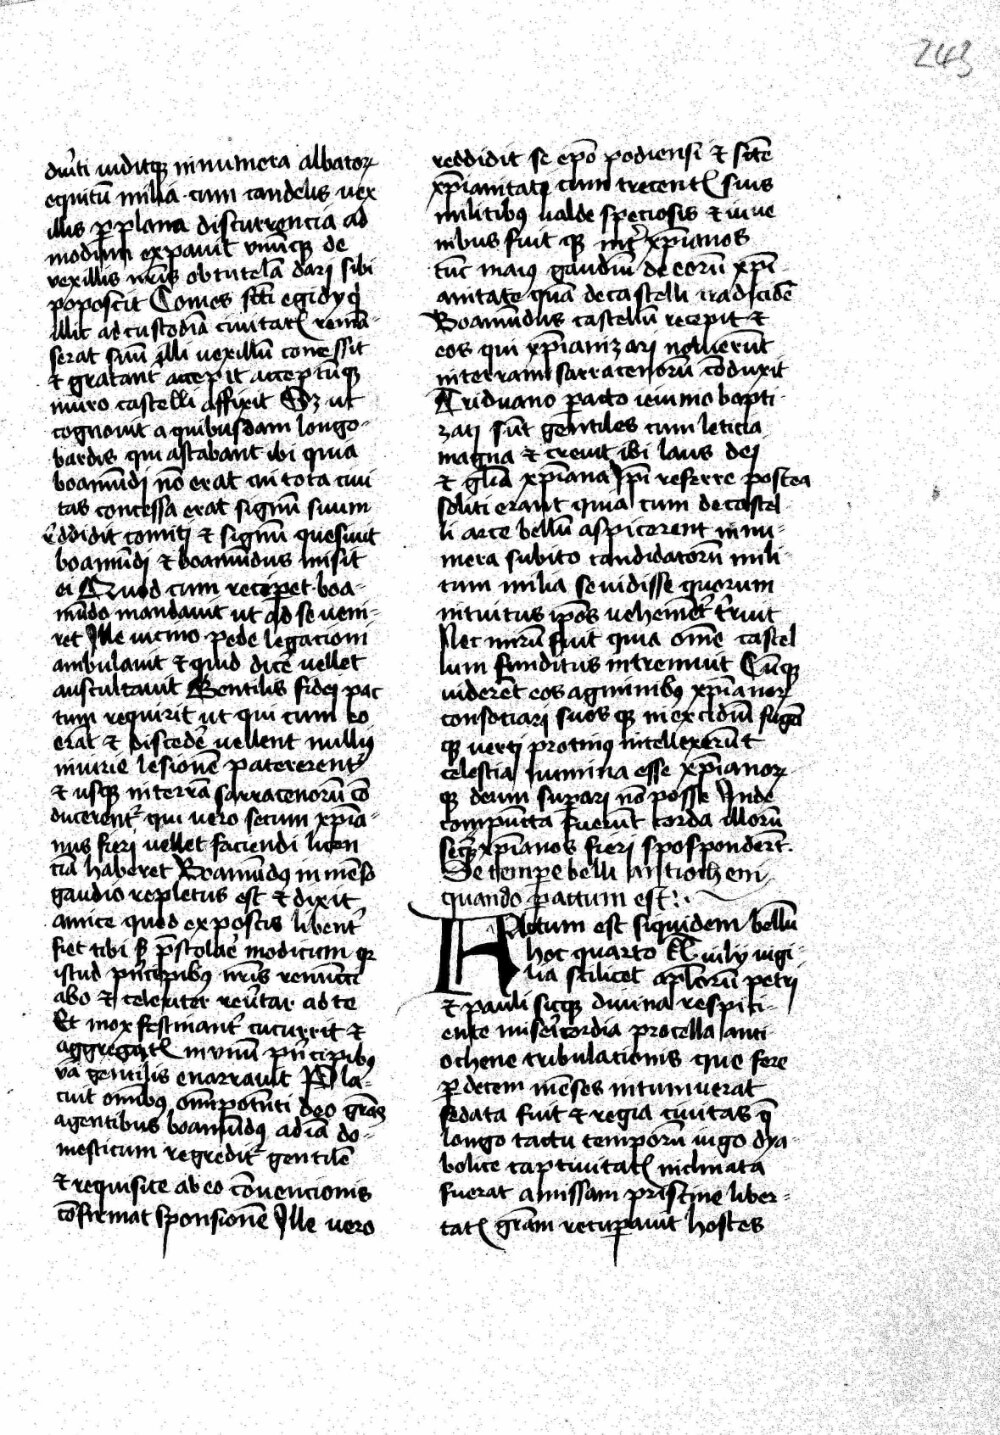 243
diuti viditqꝫ innumera albatoꝝ
equitū milia cum candelis vex
illis ꝑ plana discurrencia ad
modum expauit vnūcqꝫ de
vexillis nr̄is ob tutelā dari sibi
poposcit Comes sc̄ti egidij q̇
illic ad custodiā ciuitatꝭ reman̄
serat suū illi vexillū concessit
⁊ gratant̄ accepit acceptūqꝫ
muro castelli affixit Sꝫ ut
cognouit a quibusdam longo-
bardis qui astabant ibi quia
boamūdi nō erat cui tota ciui
tas concessa erat signū suum
reddidit comitj ⁊ signū quesiuit
boamūdj ⁊ boamūdus misit
ei Quod cum recepet boa-
mūdo mandauit ut ad se veni-
ret Ille vicino pede legacioni
ambulauit ⁊ quid dice᷑ vellet
auscultauit Gentilis fidej pac
tum requirit ut qui cum eo
erāt ⁊ discede᷑ vellent nullꝰ
iniurie lesionē paterent᷑
⁊ usqꝫ in terrā sarracenorū cō
ducerent᷑ qui vero secum xp̄ia-
nus fieri vellet faciendi licen
ciā haberet Boamūdus inmēso
gaudio repletus est ⁊ dixit
amice quod exposcis libent᷑
fiet tibi sꝫ p̄stolare modicum qꝛ
istud pn̄cipibus nr̄is renūti
abo ⁊ celeriter reu᷑tar ad te
Et mox festinant᷑ cucurrit ⁊
aggregatꝭ in vnū pn̄cipibꝰ
v̄ba gentilis enarrauit Pla-
cuit om̄ibus om̄ipotn̄ti deo grās
agentibus boamūdꝰ ad iā do-
mesticum regredit᷑ gentilē
⁊ requisite ab eo cōuencionis
cōfirmat sponsionē Ille vero
reddidit se ep̄o podiensi ⁊ sc̄te
xp̄ianitatj cum trecentꝭ suis
militibꝰ valde speciosis ⁊ iuue
nibus fuit qꝫ int᷑ xp̄ianos
tūc maiꝰ gaudiū de eorū xp̄i
anitate quā de castelli tradicōe
Boamūdus castellū recepit ⁊
eos qui xp̄ianizari noluerūt
in terram sarracenorū cōduxit
Triduano ꝑacto ieiunio bapti-
zatj sūt gentiles cum leticia
magna ⁊ creuit ibi laus dej
⁊ gl̄ia xp̄iana Ip̄i referre postea
soliti erant quia cum de castel-
li arce bellū aspicerent innu-
mera subito candidatorū mili-
tum milia se vidisse quorum
intuitus ip̄os vehemēt᷑ t᷑ruit
Nec mirū fuit quia om̄e castel
lum funditus intremuit Cūqꝫ
viderēt eos agminibꝰ xp̄ianoꝝ
consociari suos qꝫ in excidiū fugā
qꝫ vertj protinꝰ intellexerūt
celestia numina esse xp̄ianoꝝ
qꝫ deum suꝑari nō posse Inde
compūcta fuerūt corda illorū
seqꝫ xp̄ianos fieri spospondert̄.
De tempe belli antiochenj
quando ꝑactum est
Actum est siquidem bellū
hoc quarto kl̄ iulij vigi-
lia scilicet aplorū petrj
⁊ pauli sicqꝫ diuina respici-
ente mis᷑icordia procella anti
ochene tribulationis que fere
ꝑ decem mēses intumuerat
sedata fuit ⁊ regia ciuitas q̄
longo tactu temporū iugo dya
bolice captiuitatꝭ inclinata
fuerat amissam pristine liber-
tatꝭ grām recuꝑauit hostes